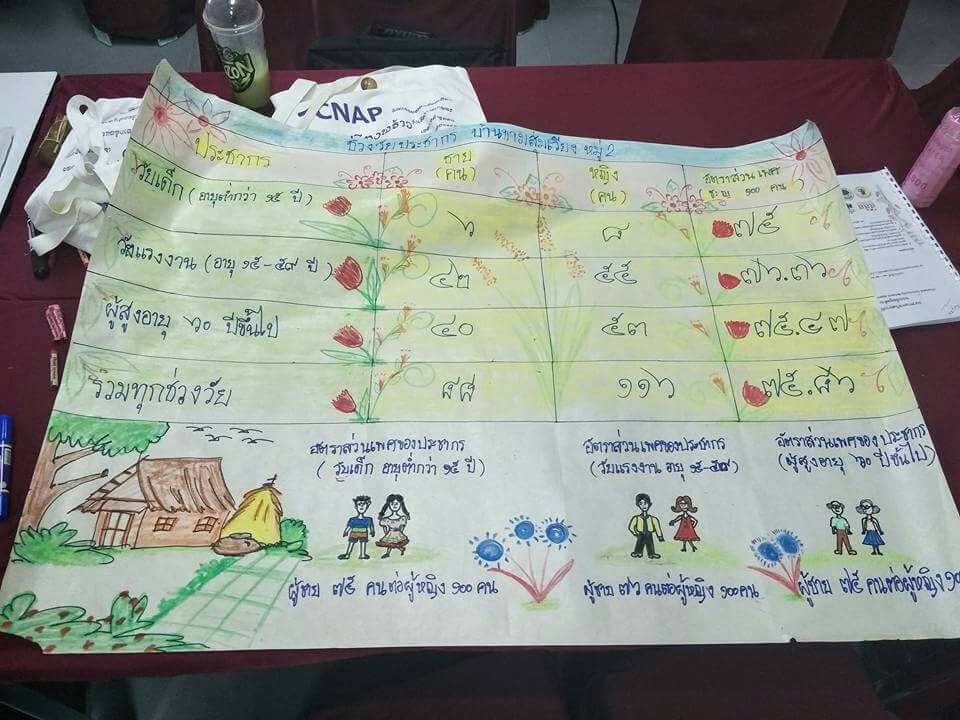 CNAP
ช่วงวัยประชากร บ้านทามเสะเวียง หมู่ 2
ประชากร
ชาย
(คน)
หญิง
(คน)
อัตราส่วนเพศ
ช:ญ ๑๐๐ คน
วัยเด็ก (อายุต่ำกว่า ๑๕ ปี) ๖ ๘ ๗๕
วัยแรงงาน (อายุ ๑๕-๕๙ ปี) ๔๒ ๕๕ ๗๖.๓๖
ผู้สูงอายุ ๖๐ ปีขึ้นไป ๔๐ ๕๓ ๗๕.๔๗
รวมทุกช่วงวัย ๘๘ ๑๑๖ ๗๕.๘๖
อัตราส่วนเพศของประชากร
(วัยเด็ก อายุต่ำกว่า ๑๕ ปี)
ผู้ชาย ๗๕ คนต่อผู้หญิง ๑๐๐ คน
อัตราส่วนเพศของประชากร
(วัยแรงงาน อายุ ๑๕-๕๙)
ผู้ชาย ๗๖ คนต่อผู้หญิง ๑๐๐ คน
อัตราส่วนเพศของประชากร
(ผู้สูงอายุ ๖๐ ปีขึ้นไป)
ผู้ชาย ๗๕ คนต่อผู้หญิง ๑๐